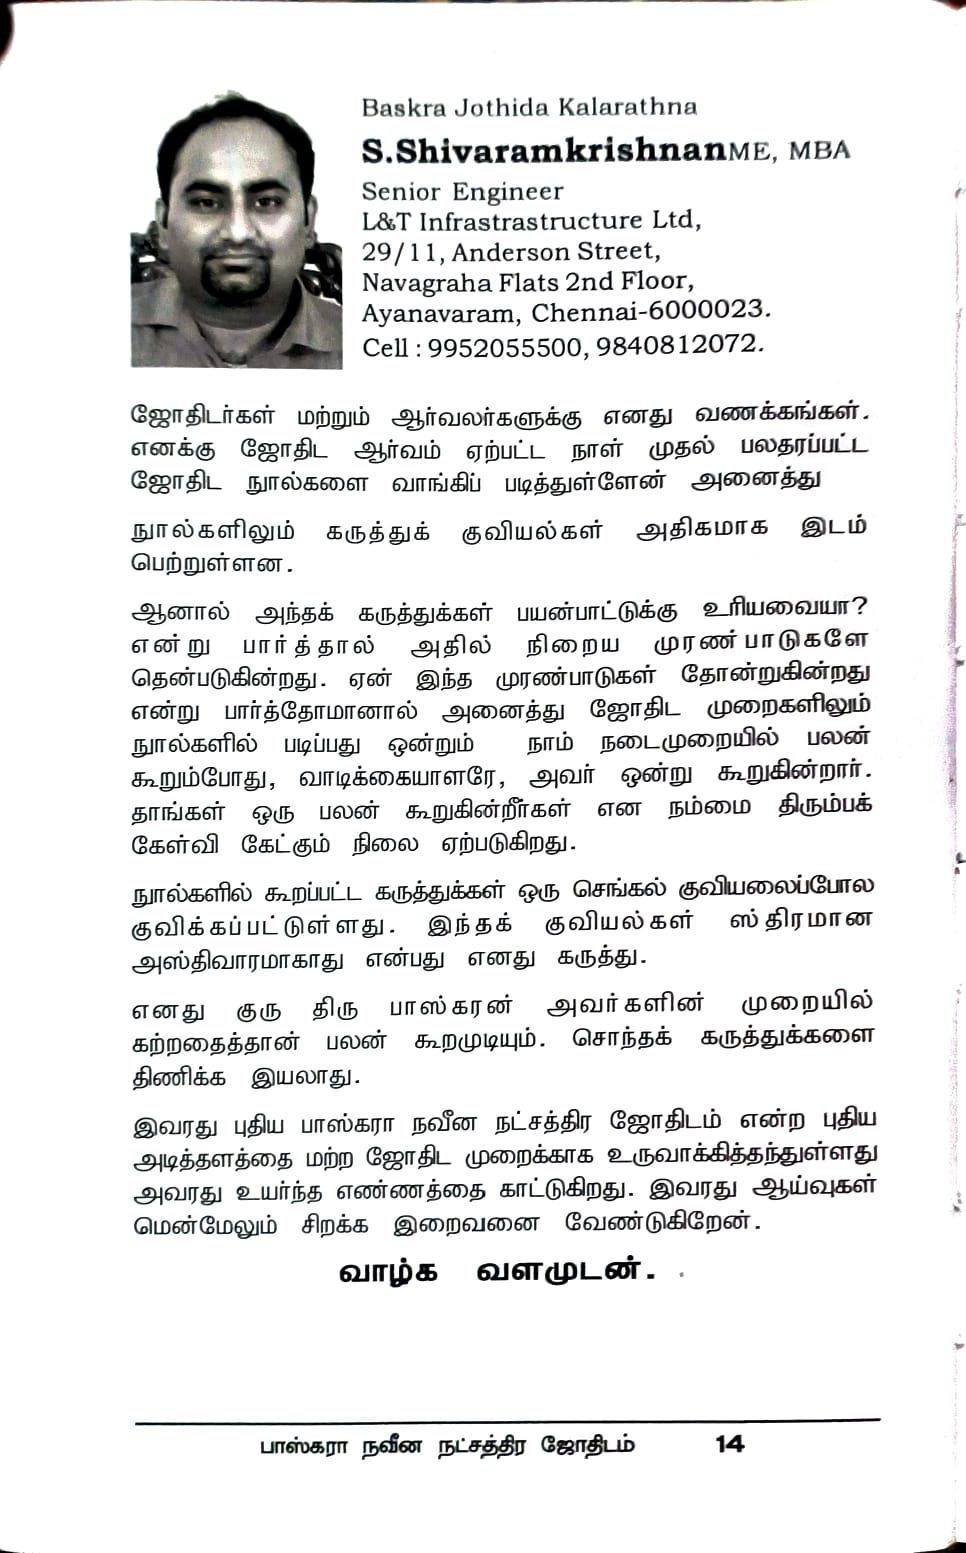 Baskra Jothida Kalarathna
S.Shivaramkrishnan ME, MBA
Senior Engineer
L&T Infrastrastructure Ltd,
29/11, Anderson Street,
Navagraha Flats 2nd Floor,
Ayanavaram, Chennai-6000023.
Cell : 9952055500, 9840812072.
ஜோதிடர்கள் மற்றும் ஆர்வலர்களுக்கு எனது வணக்கங்கள்.
எனக்கு ஜோதிட ஆர்வம் ஏற்பட்ட நாள் முதல் பலதரப்பட்ட
ஜோதிட நூல்களை வாங்கிப் படித்துள்ளேன் அனைத்து
நூல்களிலும் கருத்துக் குவியல்கள் அதிகமாக இடம்
பெற்றுள்ளன.
ஆனால் அந்தக் கருத்துக்கள் பயன்பாட்டுக்கு உரியவையா?
என்று பார்த்தால் அதில் நிறைய முரண்பாடுகளே
தென்படுகின்றது. ஏன் இந்த முரண்பாடுகள் தோன்றுகின்றது
என்று பார்த்தோமானால் அனைத்து ஜோதிட முறைகளிலும்
நூல்களில் படிப்பது ஒன்றும் நாம் நடைமுறையில் பலன்
கூறும்போது, வாடிக்கையாளரே, அவர் ஒன்று கூறுகின்றார்.
தாங்கள் ஒரு பலன் கூறுகின்றீர்கள் என நம்மை திரும்பக்
கேள்வி கேட்கும் நிலை ஏற்படுகிறது.
நூல்களில் கூறப்பட்ட கருத்துக்கள் ஒரு செங்கல் குவியலைப்போல
குவிக்கப்பட்டுள்ளது. இந்தக் குவியல்கள் ஸ்திரமான
அஸ்திவாரமாகாது என்பது எனது கருத்து.
எனது குரு திரு பாஸ்கரன் அவர்களின் முறையில்
கற்றதைத்தான் பலன் கூறமுடியும். சொந்தக் கருத்துக்களை
திணிக்க இயலாது.
இவரது புதிய பாஸ்கரா நவீன நட்சத்திர ஜோதிடம் என்ற புதிய
அடித்தளத்தை மற்ற ஜோதிட முறைக்காக உருவாக்கித்தந்துள்ளது
அவரது உயர்ந்த எண்ணத்தை காட்டுகிறது. இவரது ஆய்வுகள்
மென்மேலும் சிறக்க இறைவனை வேண்டுகிறேன்.
வாழ்க வளமுடன்.
பாஸ்கரா நவீன நட்சத்திர ஜோதிடம் 14